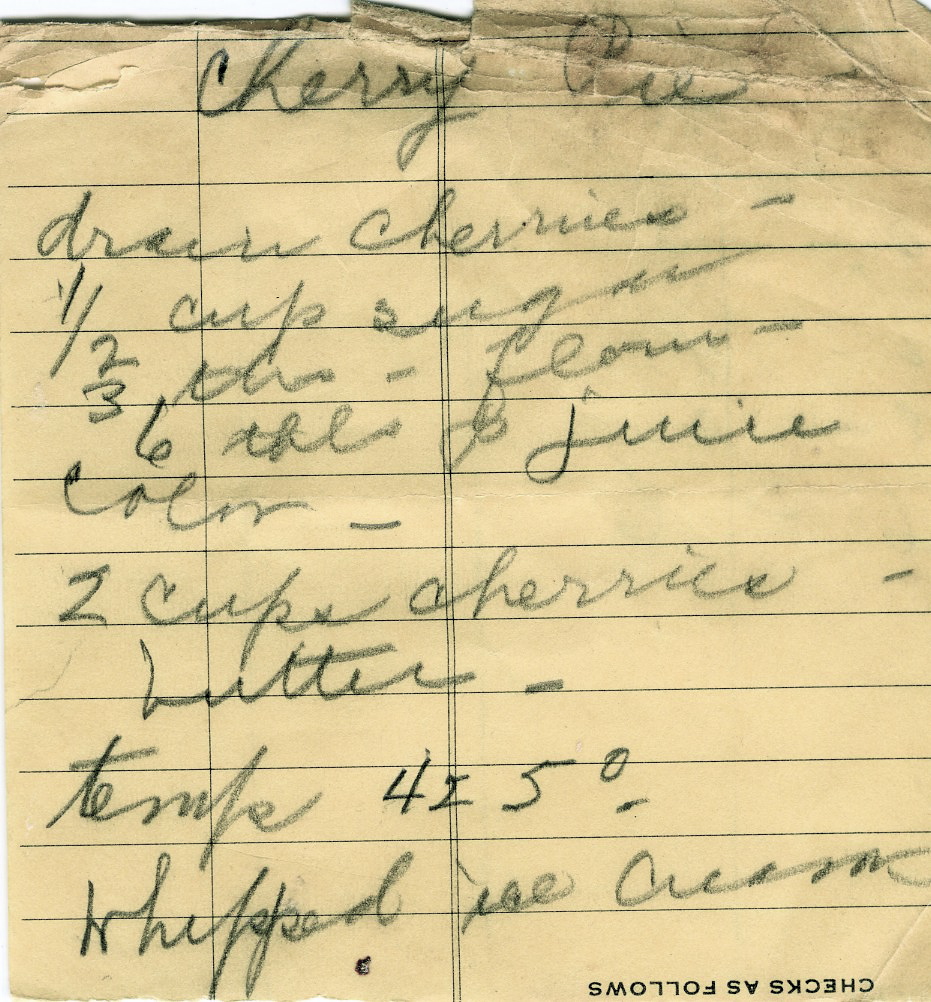 Cherry Pie
drain cherries -
1/2 cup sugar
3 tbs - flour -
6 tbls of juice
Color -
2 cups cherries -
butter -
temp 425° -
Whipped ice cream
CHECKS AS FOLLOWS